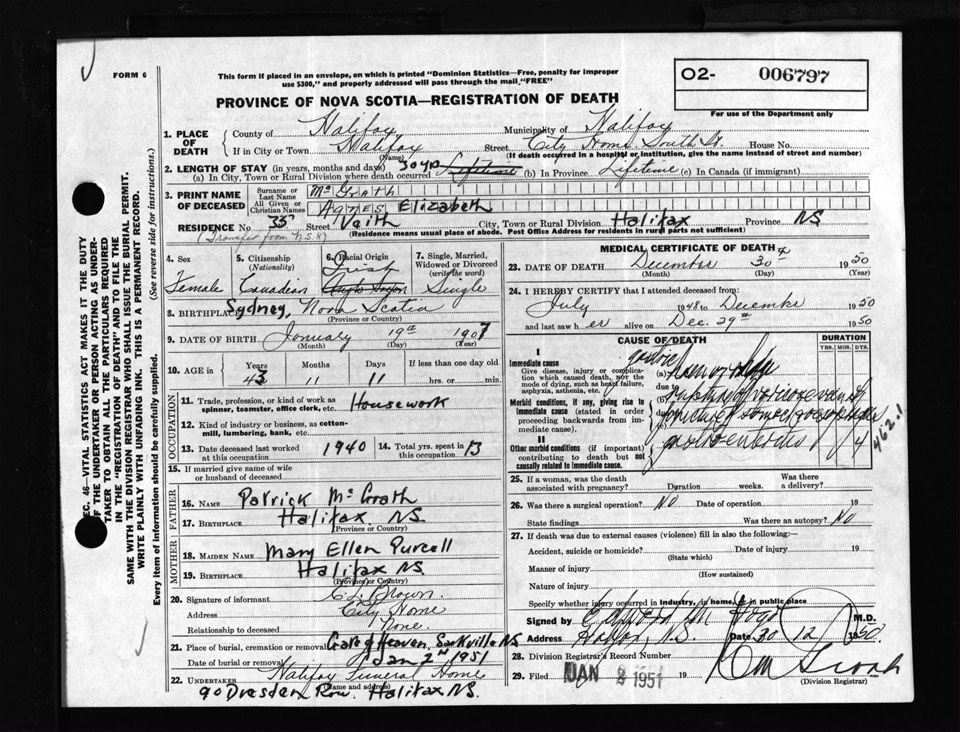 FORM 6
This form if placed in an envelope, on which is printed "Dominion Statistics—Free, penalty for improper
use $300," and properly addressed will pass through the mail, "FREE"
PROVINCE OF NOVA SCOTIA—REGISTRATION OF DEATH
O2- 006797
For use of the Department only
SEC. 46—VITAL STATISTICS ACT MAKES IT THE DUTY
OF THE UNDERTAKER OR PERSON ACTING AS UNDER-
TAKER TO OBTAIN ALL THE PARTICULARS REQUIRED
IN THE "REGISTRATION OF DEATH" AND TO FILE THE
SAME WITH THE DIVISION REGISTRAR WHO SHALL ISSUE THE BURIAL PERMIT.
WRITE PLAINLY WITH UNFADING INK. THIS IS A PERMANENT RECORD.
Every item of information should be carefully supplied. (See reverse side for instructions.)
1. PLACE OF DEATH
County of Halifax Municipality of Halifax
If in City or Town Halifax Street City Home South St. House No.
(Name) (If death occurred in a hospital or institution, give the name instead of street and number)
2. LENGTH OF STAY (in years, months and days) 30 yrs
(a) In City, Town or Rural Division where death occurred Lifetime (b) In Province Lifetime (c) In Canada (if immigrant)
3. PRINT NAME OF DECEASED
Surname or Last Name McGrath
All Given or Christian Names Agnes Elizabeth
RESIDENCE No. 35 Street Veith City, Town or Rural Division Halifax Province NS
(Transfer from N.S.H) (Residence means usual place of abode. Post Office Address for residents in rural parts not sufficient)
4. Sex Female
5. Citizenship (Nationality) Canadian
6. Racial Origin Irish Anglo Saxon
7. Single, Married, Widowed or Divorced (write the word) Single
8. BIRTHPLACE Sydney, Nova Scotia
(Province or Country)
9. DATE OF BIRTH January 19th 1907
(Month) (Day) (Year)
10. AGE in Years 43 Months 11 Days 11 If less than one day old
hrs. or min.
OCCUPATION
11. Trade, profession, or kind of work as
spinner, teamster, office clerk, etc. Housework
12. Kind of industry or business, as cotton-
mill, lumbering, bank, etc.
13. Date deceased last worked at this occupation 1940
14. Total yrs. spent in this occupation 13
15. If married give name of wife
or husband of deceased
FATHER
16. NAME Patrick McGrath
17. BIRTHPLACE Halifax NS
(Province or Country)
MOTHER
18. MAIDEN NAME Mary Ellen Purcell
19. BIRTHPLACE Halifax NS
(Province or Country)
20. Signature of informant C.L. Brown.
Address City Home
Relationship to deceased None.
21. Place of burial, cremation or removal Gate of Heaven, Sackville NS
Date of burial or removal Jan 2nd 1951
22. UNDERTAKER Halifax Funeral Home
(Name and address)
90 Dresden Row. Halifax NS.
MEDICAL CERTIFICATE OF DEATH
23. DATE OF DEATH December 30th 1950
(Month) (Day) (Year)
24. I HEREBY CERTIFY that I attended deceased from:
July 1948 to December 1950
and last saw her alive on Dec. 29th 1950
CAUSE OF DEATH
DURATION
YRS. MOS. DYS.
I
Immediate cause
Give disease, injury or complica-
tion which caused death, not the
mode of dying, such as heart failure,
asphyxia, asthenia, etc.
(a) gastric
due to
Morbid conditions, if any, giving rise to
immediate cause (stated in order
proceeding backwards from im-
mediate cause).
II
Other morbid conditions (if important)
contributing to death but not
causally related to immediate cause.
gastro enteritis 4
462.1
25. If a woman, was the death
associated with pregnancy? Duration weeks. Was there
a delivery?
26. Was there a surgical operation? No Date of operation 19
State findings Was there an autopsy? No
27. If death was due to external causes (violence) fill in also the following:—
Accident, suicide or homicide? Date of injury 19
(State which)
Manner of injury
(How sustained)
Nature of injury
Specify whether injury occurred in industry, in home, or in public place
Signed by M.D.
Address Halifax, N.S. Date 30/12/1950
28. Division Registrar's Record Number
29. Filed JAN 2 1951 19
(Division Registrar)